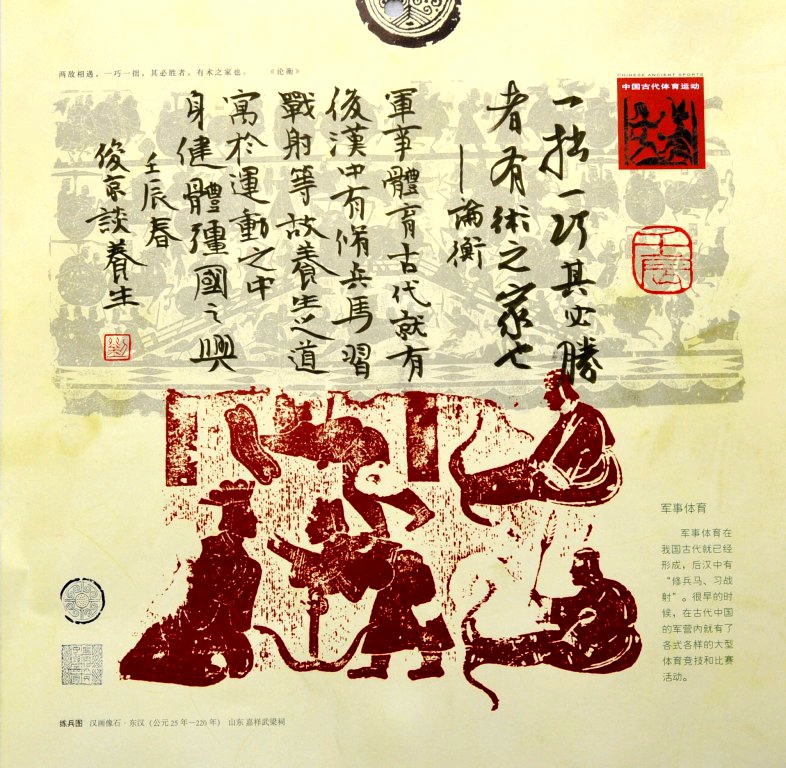 两敌相遇，一巧一拙，其必胜者，有术之家也。 《论衡》
CHINESE ANCIENT SPORTS
中国古代体育运动
一拙一巧其必勝
者有術之家也
—論衡
軍事體育古代就有
後漢中有脩兵馬習
戰射等故養生之道
寓於運動之中
身健體彊國之興
壬辰春
俊京談養生
军事体育
军事体育在
我国古代就已经
形成，后汉中有
“修兵马、习战
射”。很早的时
候，在古代中国
的军营内就有了
各式各样的大型
体育竞技和比赛
活动。
练兵图 汉画像石·东汉（公元25年—220年） 山东 嘉祥武梁祠